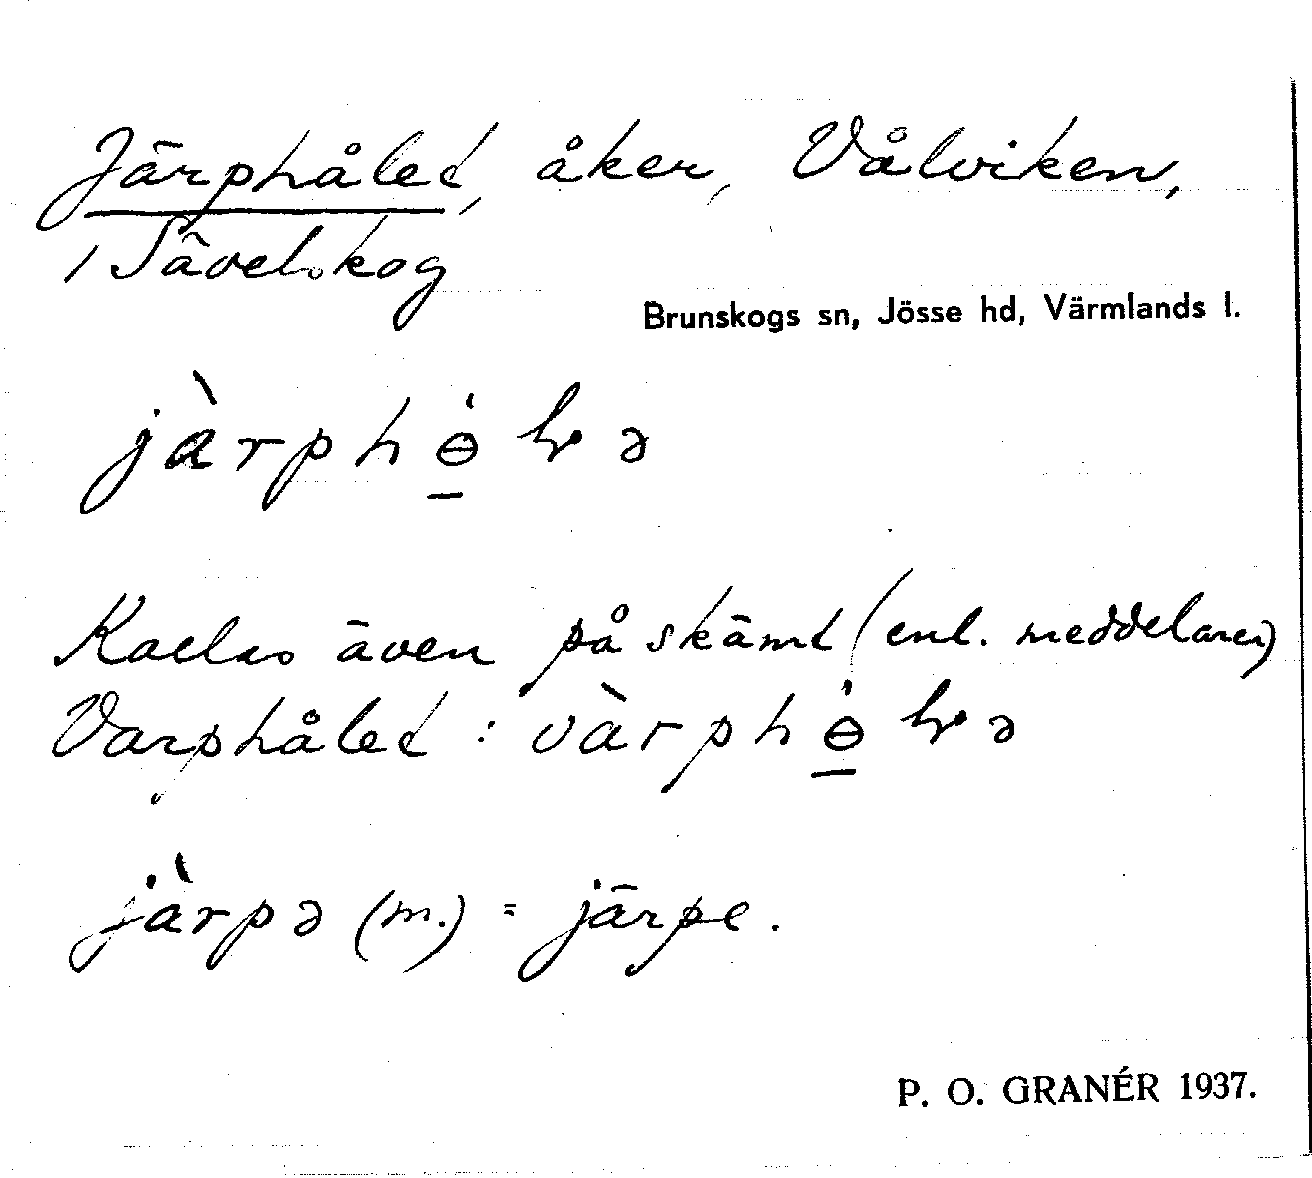 Järphålet, åker, Vålviken,
/ Sävelskog
Brunskogs sn, Jösse hd, Värmlands l.
jàrphɵ̱́ɽə
Kallas även på skämt (enl. meddelaren)
Varphålet : vàrphɵ̱́ɽə
jàrpə (m.) = järpe.
P. O. GRANÉR 1937.